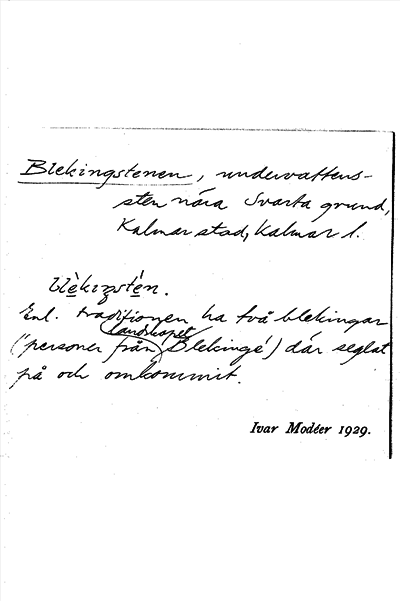 Blekingstenen, undervattens-
sten nära Svarta grund,
Kalmar stad, Kalmar l.
blèkiŋstén.
Enl. traditionen ha två blekingar
('personer från landskapet Blekinge') där seglat
på och omkommit.
Ivar Modéer 1929.